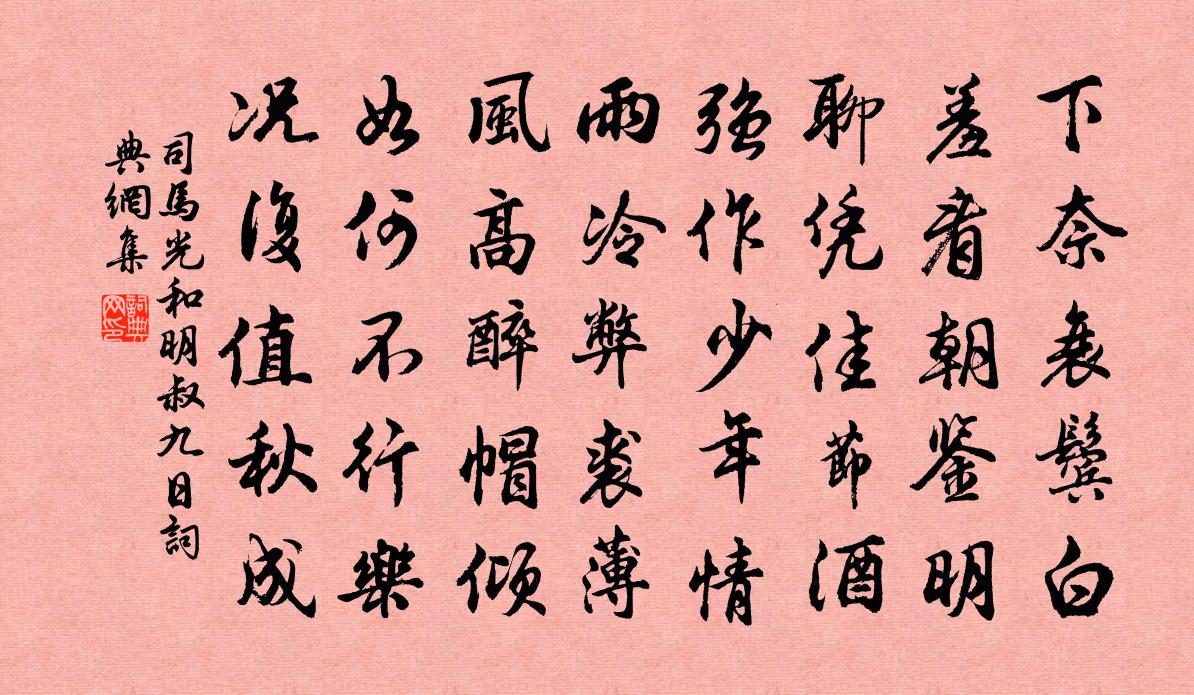 下奈衰鬢白
羞看朝鉴明
聊凭佳節酒
強作少年情
雨冷弊裘薄
風高醉帽倾
如何不行樂
况復值秋成
司馬光和明叔九日詞
典網集
詞典网印